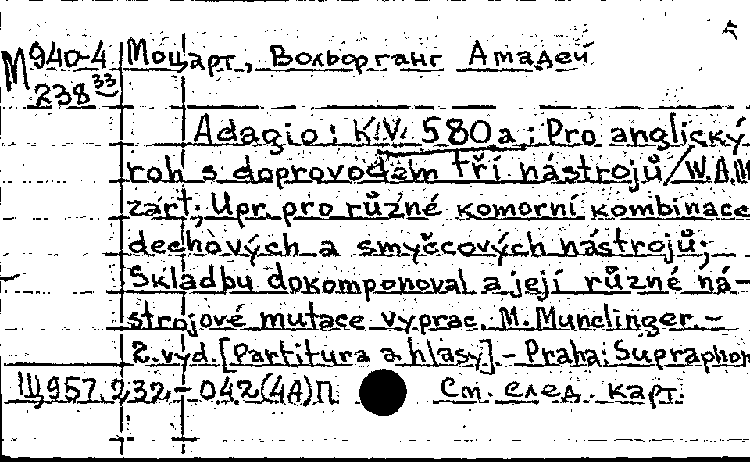 М 940-4 Моцарт, Вольфганг Амадей
238 33
Adagio: K.V. 580a; Pro anglický
roh s doprovodem tří nástrojů/W.A.M
zart; Upr. pro různé komorní kombinace
dechových a smyčcových nástrojů;
Skladbu dokomponoval a její různé ná-
strojové mutace vyprac. M. Munclinger.-
2. vyd. [Partitura a hlasy].- Praha: Supraphon
Щ957.232.-042(4А)П См. след. карт.